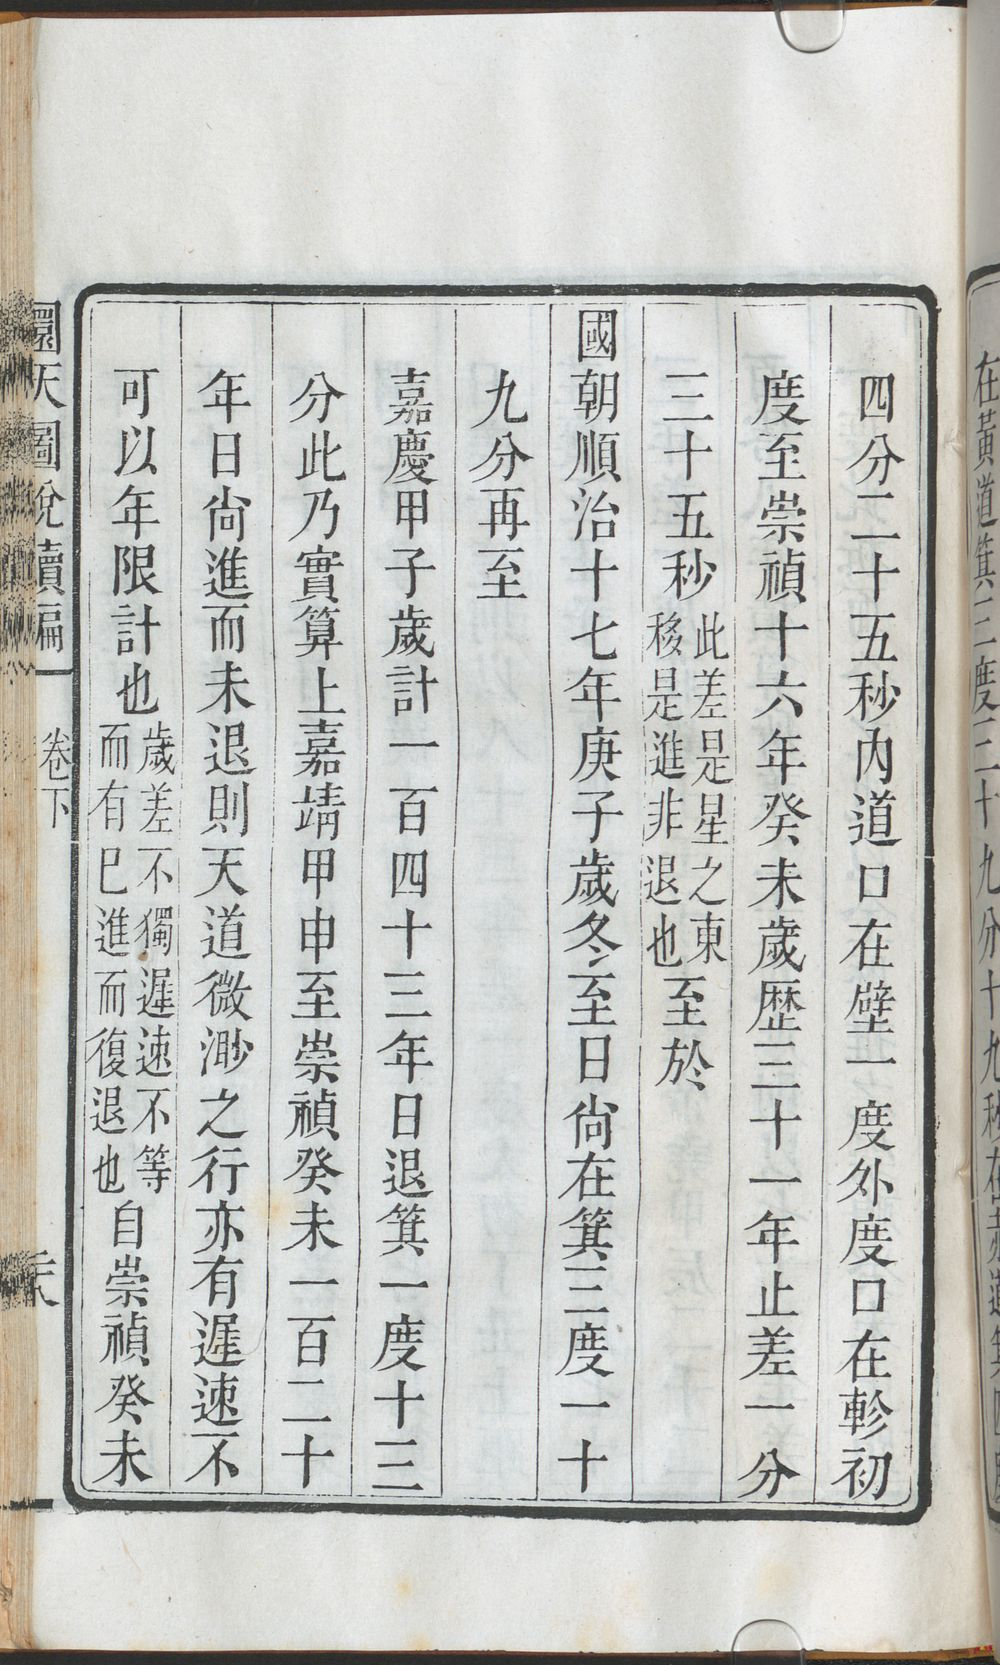 四分二十五秒內道口在壁一度外度口在軫初
度至崇禎十六年癸未歲歷三十一年止差一分
三十五秒此差是星之東移是進非退也至於
國朝順治十七年庚子歲冬至日尙在箕三度一十
九分再至
嘉慶甲子歲計一百四十三年日退箕一度十三
分此乃實算上嘉靖甲申至崇禎癸未一百二十
年日尙進而未退則天道微渺之行亦有遲速不
可以年限計也歲差不獨遲速不等而有已進而復退也自崇禎癸未
圜天圖說續編
卷下
在黃道箕三度二十九分十九秒在